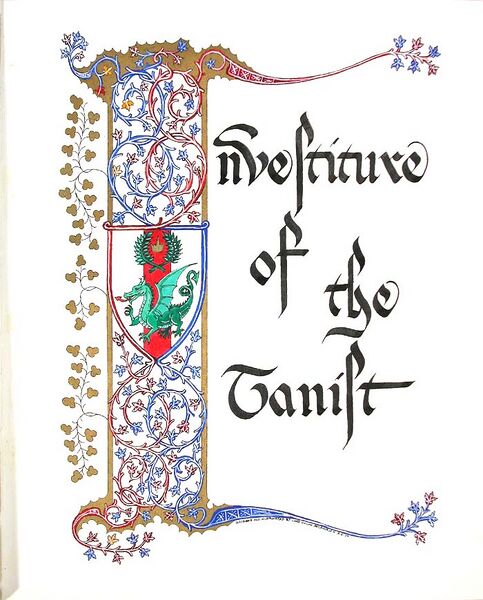 Investiture
of
the
Tanist